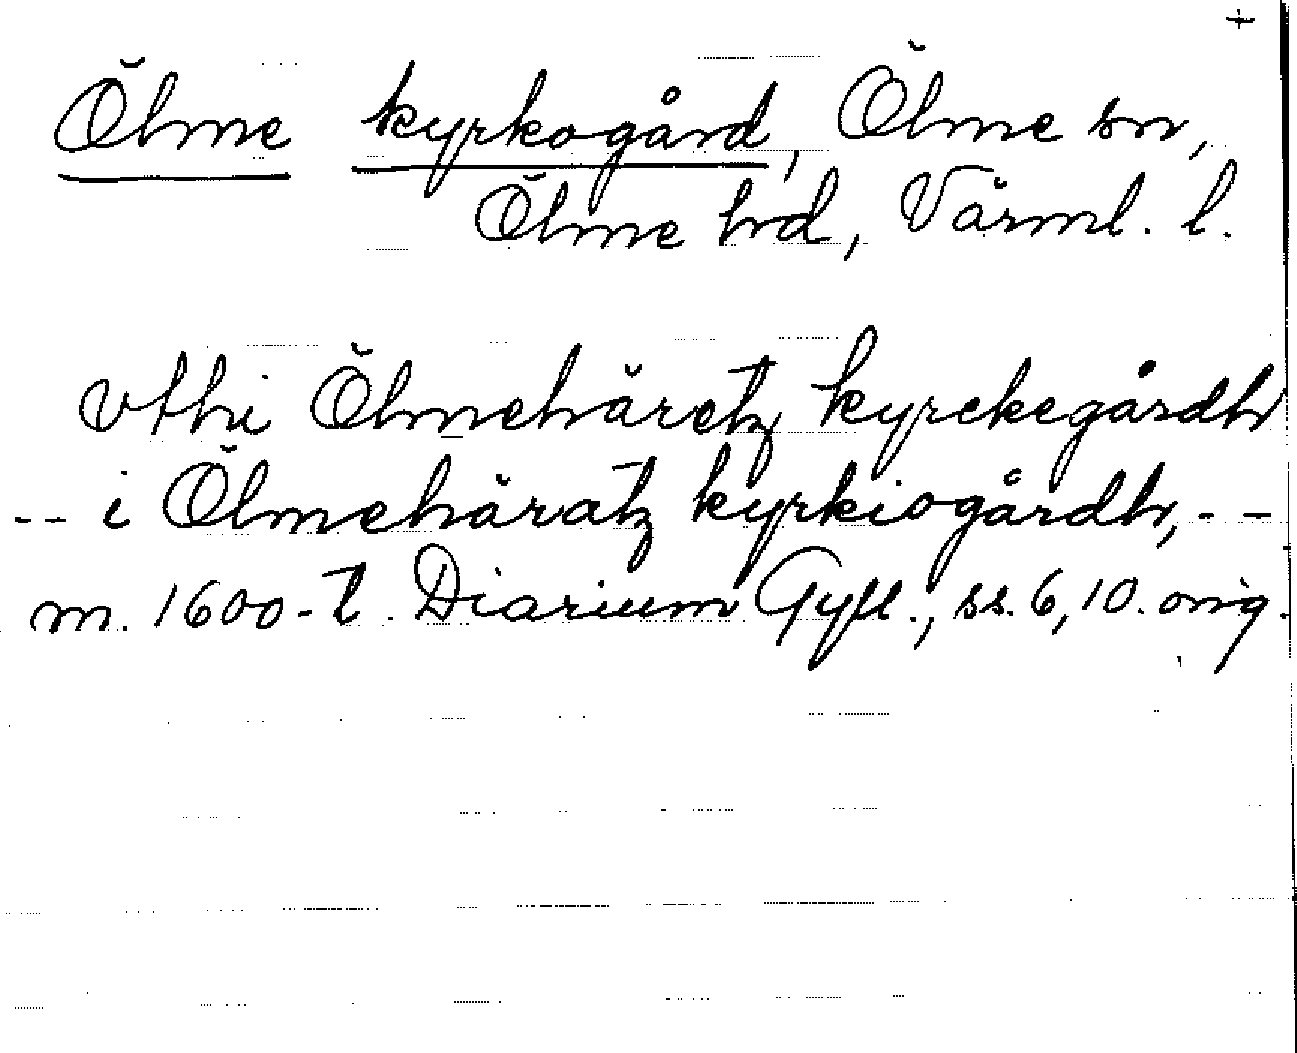 +
Ölme kyrkogård, Ölme sn,
Ölme hd, Värml. l.
vthi Ölmehäretz kyrckegårdh
-- i Ölmehäratz kyrkiogårdh, --
m. 1600-t. Diarium Gyll., ss. 6, 10. orig.